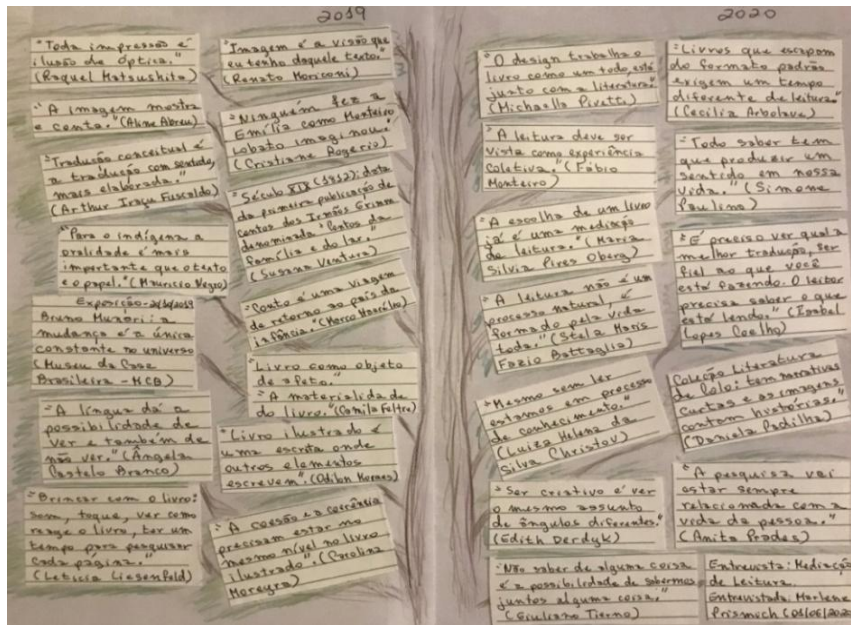 2019
"Toda impressão é
ilusão de óptica."
(Raquel Matsushita)
"A imagem mostra
e conta." (Aline Abreu)
"Tradução conceitual é
a tradução com sentido,
mais elaborada."
(Arthur Iraçu Fuscaldo)
"Para o indígena a
oralidade é mais
importante que o texto
e o papel." (Maurício Negro)
Exposição - 21/10/2019
Bruno Munari: a
mudança é a única
constante no universo
(Museu da Casa
Brasileira - MCB)
"A língua dá a
possibilidade de
ver e também de
não ver." (Ângela
Castelo Branco)
"Brincar com o livro:
som, toque, ver como
reage o livro, ter um
tempo para pesquisar
cada página."
(Letícia Liesenfeld)
"Imagem é a visão que
eu tenho daquele texto."
(Renato Moriconi)
"Ninguém fez a
Emília como Monteiro
Lobato imaginou."
(Cristiane Rogerio)
"Século XIX (1812): data
da primeira publicação de
contos dos Irmãos Grimm
denominada 'Contos da
família e do lar."
(Susana Ventura)
"Conto é uma viagem
de retorno ao país da
infância." (Marco Haurélio)
"Livro como objeto
de afeto."
"A materialidade
do livro." (Camila Feltre)
"Livro ilustrado é
uma escrita onde
outros elementos
escrevem". (Odilon Moraes)
"A coesão e a coerência
precisam estar no
mesmo nível no livro
ilustrado". (Carolina
Moreyra)
2020
"O design trabalha o
livro como um todo, está
junto com a literatura."
(Michaella Pivetti)
"A leitura deve ser
vista como experiência
coletiva." (Fábio
Monteiro)
"A escolha de um livro
já é uma mediação
de leitura." (Maria
Silvia Pires Oberg)
"A leitura não é um
processo natural, é
formado pela vida
toda." (Stela Maris
Fazio Battaglia)
"Mesmo sem ler
estamos em processo
de conhecimento."
(Luiza Helena da
Silva Christov)
"Ser criativo é ver
o mesmo assunto
de ângulos diferentes."
(Edith Derdyk)
"Não saber de alguma coisa
é a possibilidade de sabermos
juntos alguma coisa."
(Giuliano Tierno)
"Livros que escapam
do formato padrão
exigem um tempo
diferente de leitura."
(Cecilia Arbolave)
"Todo saber tem
que produzir um
sentido em nossa
vida." (Simone
Paulino)
"É preciso ver qual a
melhor tradução, ser
fiel ao que você
está fazendo. O leitor
precisa saber o que
está lendo." (Izabel
Lopes Coelho)
Coleção Literatura
de Colo: tem narrativas
curtas e as imagens
contam histórias."
(Daniela Padilha)
"A pesquisa vai
estar sempre
relacionada com a
vida da pessoa."
(Anita Prades)
Entrevista: Mediação
de Leitura.
Entrevistada: Marlene